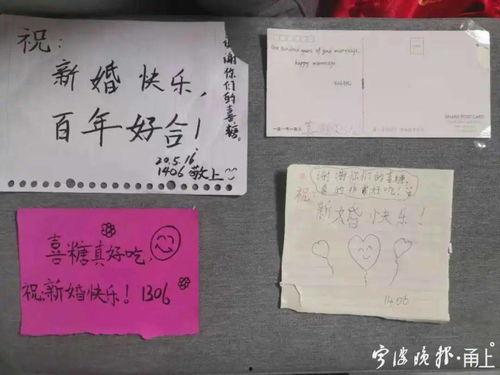 祝：
新婚快乐，
百年好合！
谢谢你们的喜糖。
20.5.16
1406 敬上
One hundred years of good marriage,
happy marriage
喜糖真好吃，
祝：新婚快乐！ 1306
谢谢你们的喜糖，
真的非常好吃！
祝：
新婚快乐！
1406
宁波晚报·甬上